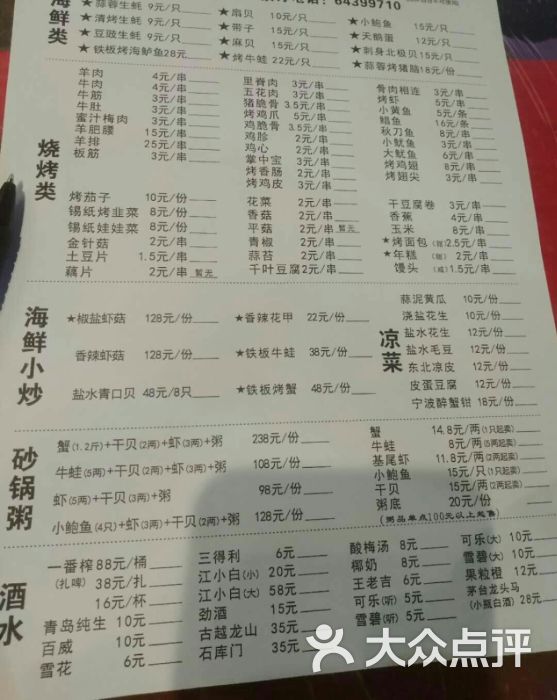 64399710
海鲜类
★蒜蓉生蚝 9元/只 ★扇贝 10元/只 ★小鲍鱼 15元/只
★清烤生蚝 9元/只 ★带子 15元/只 ★天鹅蛋 12元/只
★豆豉生蚝 9元/只 ★麻贝 15元/只 ★刺身北极贝 15元/只
★铁板烤海鲈鱼28元 ★烤牛蛙 22元/只 ★蒜蓉烤猪脑18元/份
烧烤类
羊肉 4元/串 里脊肉 3元/串 骨肉相连 3元/串
牛肉 4元/串 五花肉 3元/串 烤虾 5元/串
牛筋 3元/串 猪脆骨 3.5元/串 小黄鱼 5元/条
牛肚 3元/串 烤鸡爪 5元/串 鲳鱼 16元/条
蜜汁梅肉 3元/串 鸡脆骨 3.5元/串 秋刀鱼 8元/串
羊肥腰 15元/串 鸡胗 2元/串 小鱿鱼 3元/串
羊排 25元/串 鸡心 2元/串 大鱿鱼 6元/串
板筋 3元/串 掌中宝 3元/串 烤鸡翅 8元/串
烤香肠 2元/串 烤翅尖 3元/串
烤鸡皮 3元/串
烤茄子 10元/份 花菜 2元/串 干豆腐卷 3元/串
锡纸烤韭菜 8元/份 香菇 2元/串 香蕉 4元/串
锡纸娃娃菜 8元/份 平菇 2元/串 暂无 玉米 8元/串
金针菇 2元/串 青椒 2元/串 ★烤面包(甜)2.5元/串
土豆片 1.5元/串 蒜苔 2元/串 ★年糕(甜) 2元/串
藕片 2元/串 暂无 千叶豆腐2元/串 馒头(咸)1.5元/串
海鲜小炒
★椒盐虾菇 128元/份 ★香辣花甲 22元/份
香辣虾菇 128元/份 ★铁板牛蛙 38元/份
盐水青口贝 48元/8只 ★铁板烤蟹 48元/份
凉菜
蒜泥黄瓜 10元/份
浇盐花生 10元/份
盐水花生 12元/份
盐水毛豆 12元/份
东北凉皮 12元/份
皮蛋豆腐 12元/份
宁波醉蟹钳 18元/份
砂锅粥
蟹(1.2斤)+干贝(2两)+虾(3两)+粥 238元/份
牛蛙(5两)+干贝(2两)+虾(3两)+粥 108元/份
虾(5两)+干贝(3两)+粥 98元/份
小鲍鱼(4只)+虾(3两)+干贝(2两)+粥 128元/份
蟹 14.8元/两(1只起卖)
牛蛙 8元/两(5两起卖)
基尾虾 11.8元/两(2两起卖)
小鲍鱼 15元/只(1只起卖)
干贝 15元/两(2两起卖)
粥底 20元/份
(粥品单点100元以上起售)
酒水
一番榨88元/桶 三得利 6元 酸梅汤 8元 可乐(大) 10元
(扎啤)38元/扎 江小白(小) 20元 椰奶 8元 雪碧(大) 10元
16元/杯 江小白(大) 58元 王老吉 6元 果粒橙 12元
青岛纯生 10元 劲酒 15元 可乐(听) 5元 茅台龙头马
百威 10元 古越龙山 35元 雪碧(听) 5元 (小瓶白酒) 28元
雪花 6元 石库门 35元
大众点评